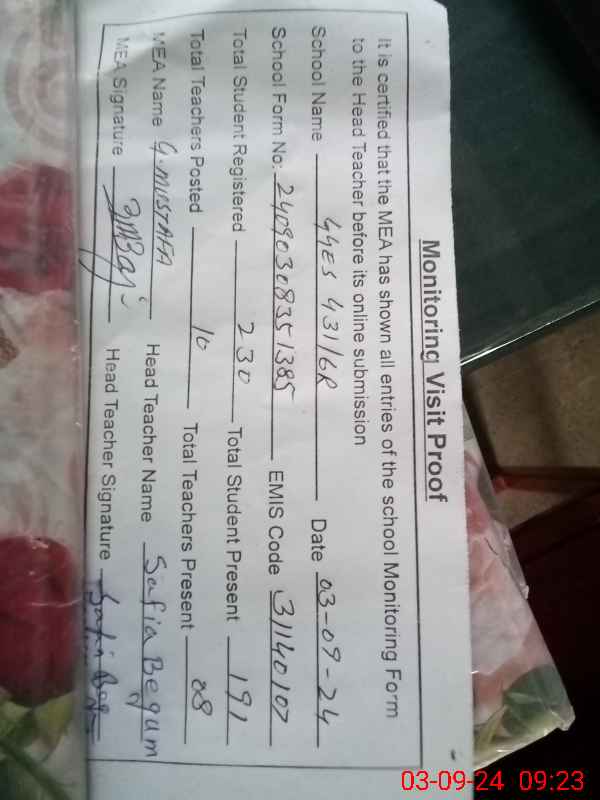 Monitoring Visit Proof
It is certified that the MEA has shown all entries of the school Monitoring Form
to the Head Teacher before its online submission
School Name GGES 431/6R Date 03-09-24
School Form No: 2409030835 1385 EMIS Code 31140107
Total Student Registered 230 Total Student Present 191
Total Teachers Posted 10 Total Teachers Present 08
MEA Name G.MUSTAFA Head Teacher Name Safia Begum
MEA Signature Head Teacher Signature
03-09-24 09:23